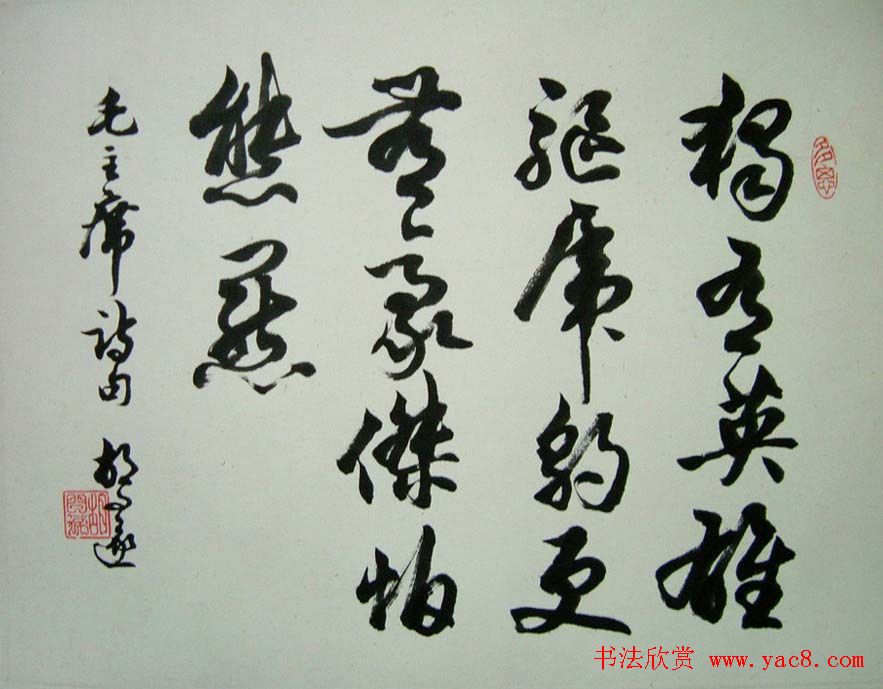 獨有英雄
驅虎豹更
無豪傑怕
熊羆
毛主席詩句 胡問遂
书法欣赏 www.yac8.com